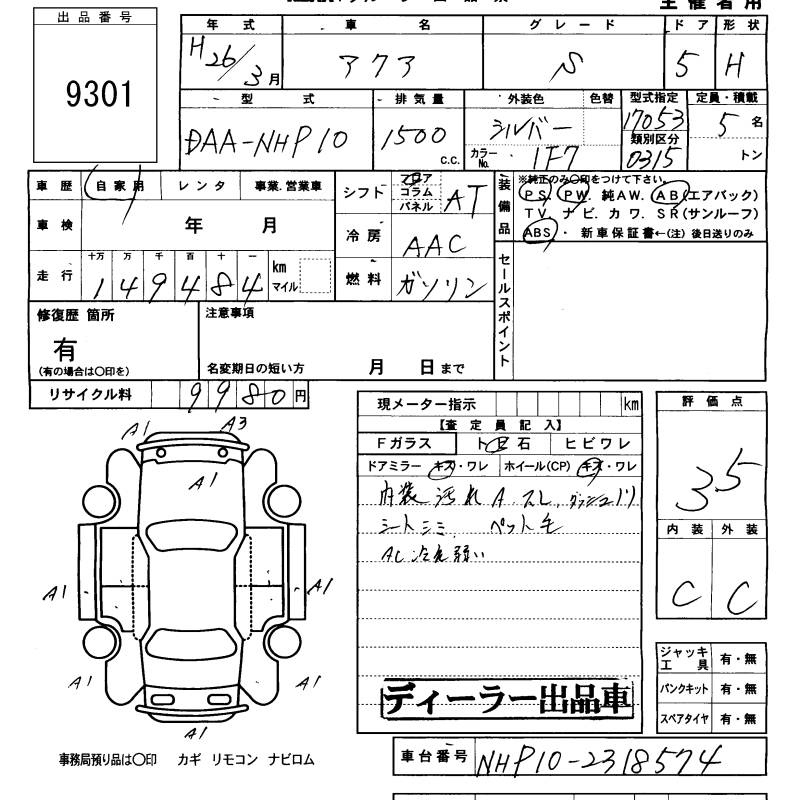 主催者用
出品番号
9301
年式 車名 グレード ドア 形状
H26/3月 アクア S 5 H
型式 排気量 外装色 色替 型式指定 定員・積載
DAA-NHP10 1500 c.c. シルバー 17053 5 名
カラーNo. 1F7 類別区分 0315 トン
車歴 自家用 レンタ 事業.営業車
シフト フロア コラム パネル AT
装備品 ※純正のみ〇印をつけて下さい。
PS. PW. 純AW. AB(エアバック)
TV. ナビ. カワ. SR(サンルーフ)
ABS. ・ 新車保証書←(注) 後日送りのみ
車検 年 月
冷房 AAC
走行 十万 万 千 百 十 一
149484 km マイル
燃料 ガソリン
セールスポイント
修復歴 箇所
有
(有の場合は〇印を)
注意事項
名変期日の短い方 月 日まで
リサイクル料 9980円
現メーター指示 km
【査定員記入】
Fガラス ト石 ヒビワレ
ドアミラー キズ・ワレ ホイール(CP) キズ・ワレ
内装 汚れ A.スレ
シートシミ ペット毛
AC冷え弱い
評価点
3.5
内装 外装
C C
A1 A3
A1
A1 A1
A1 A1
A1
ジャッキ工具 有・無
パンクキット 有・無
スペアタイヤ 有・無
ディーラー出品車
事務局預り品は〇印 カギ リモコン ナビロム
車台番号 NHP10-2318574